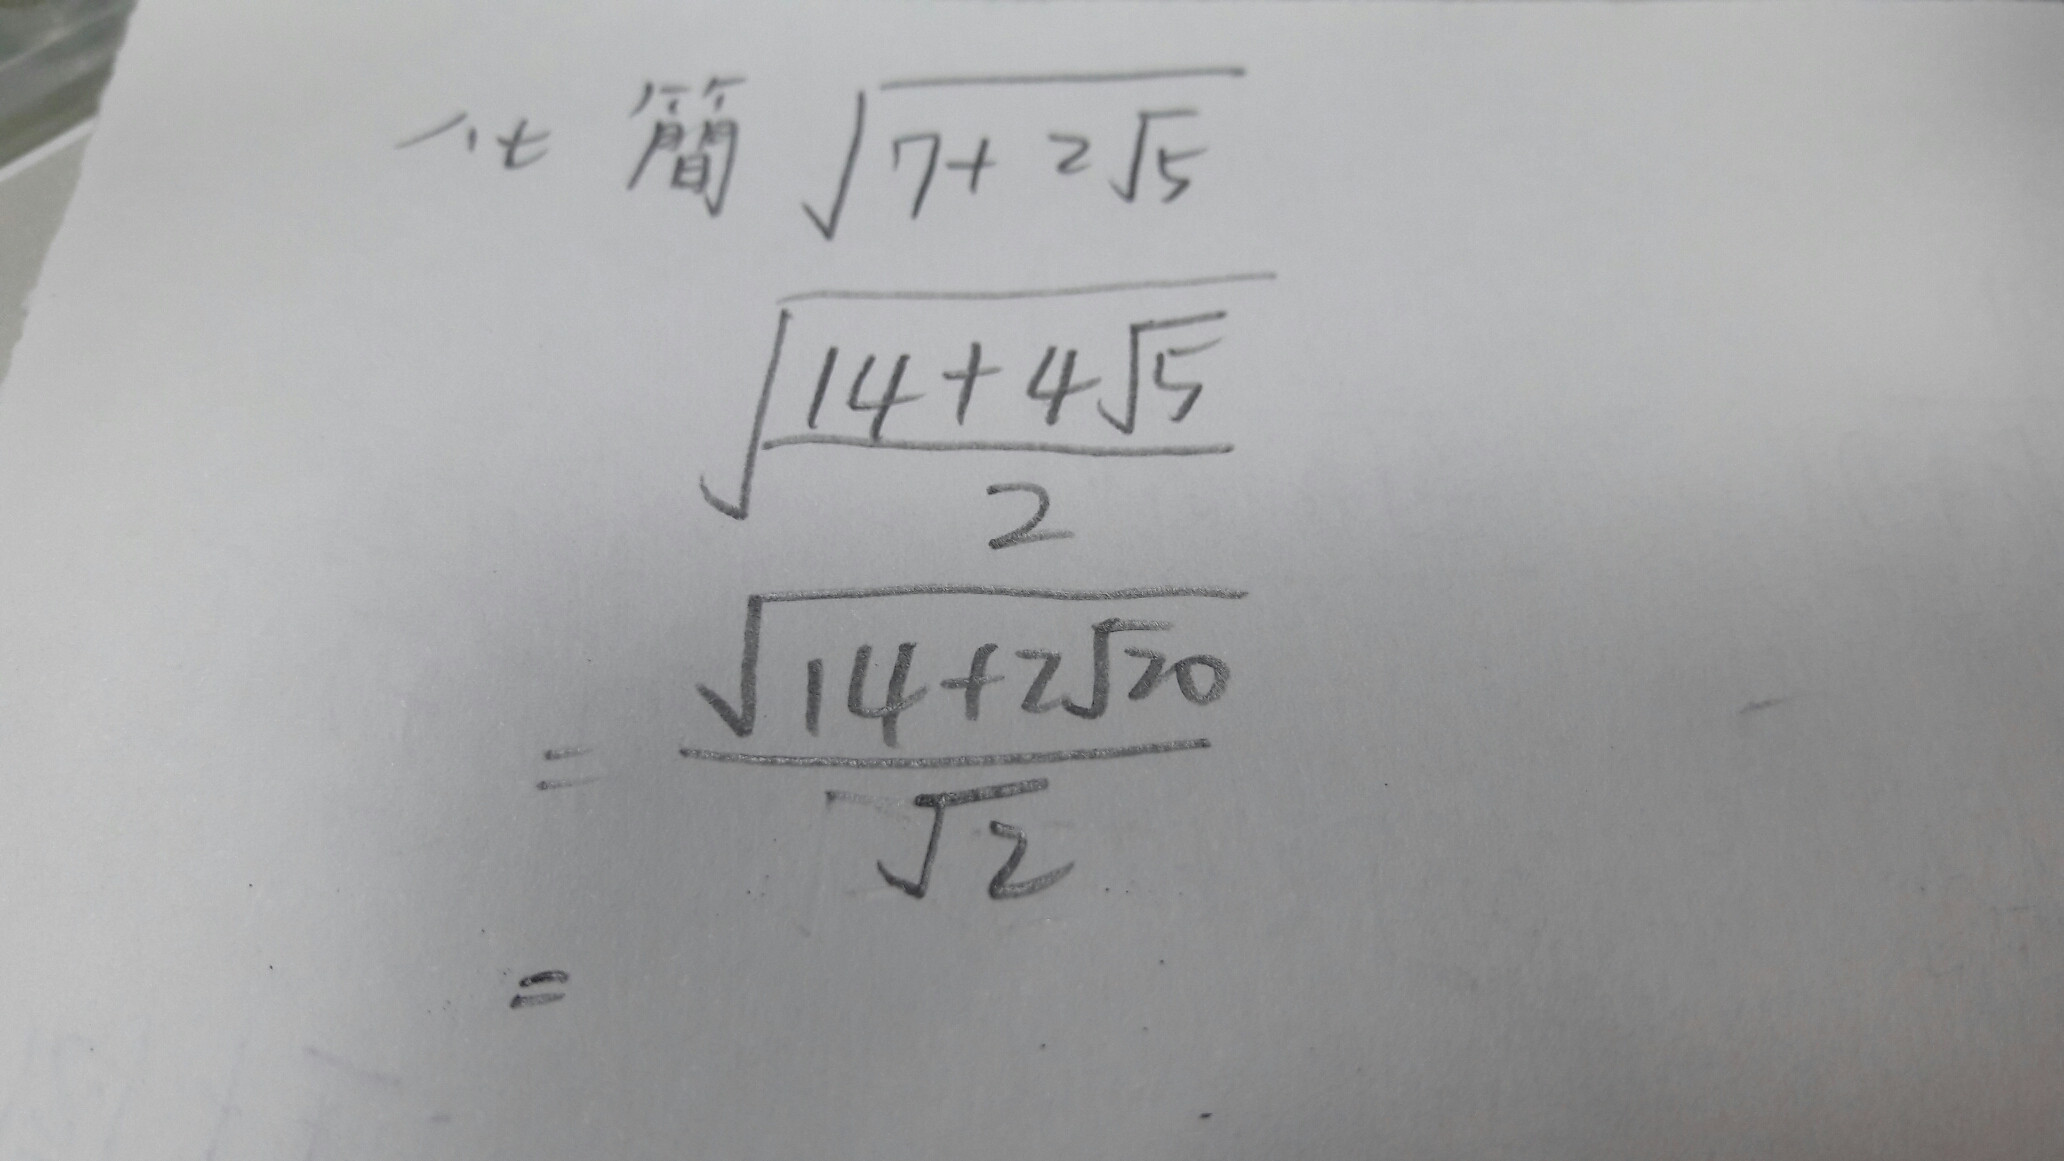 化簡 √(7+2√5)
√((14+4√5)/2)
= √(14+2√20)/√2
=